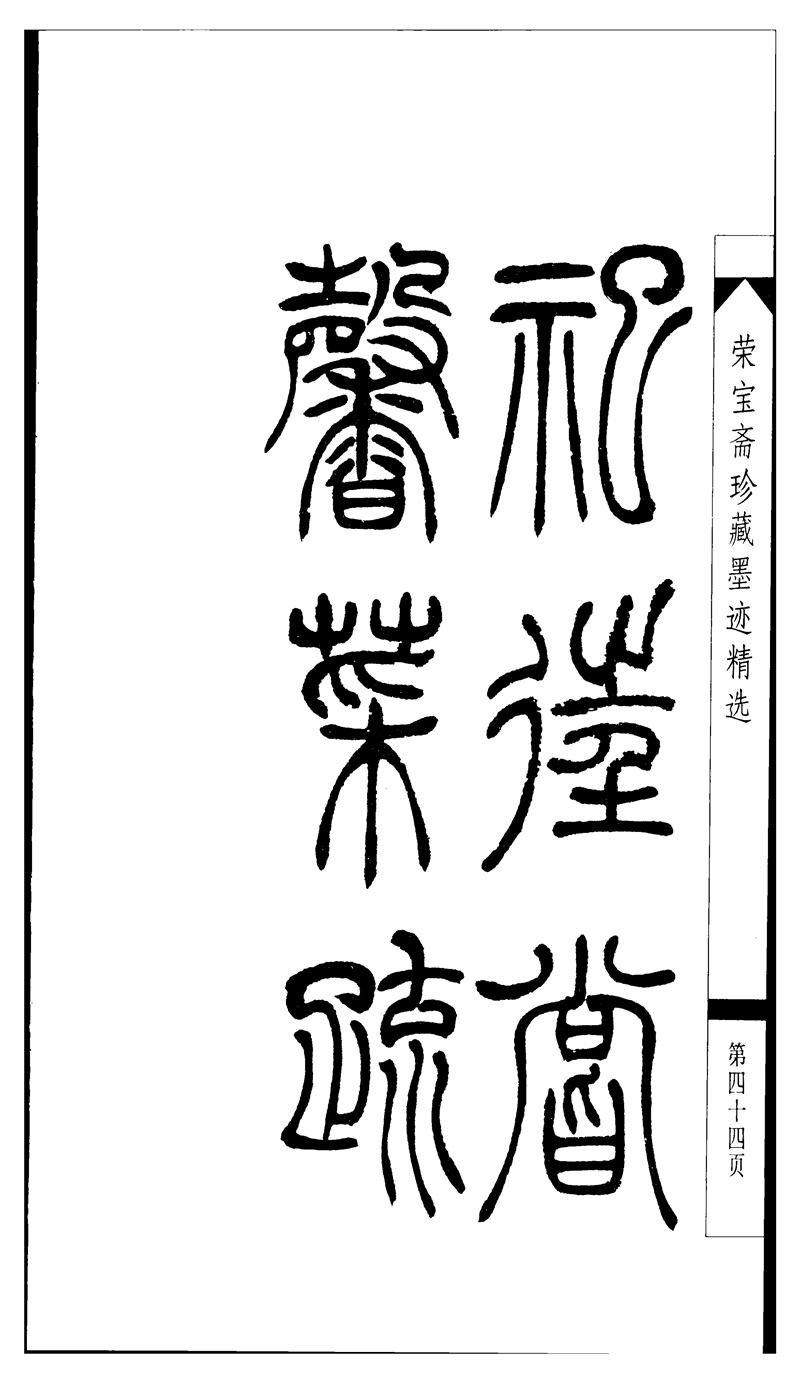 祀嘗
馨菜疏
荣宝斋珍藏墨迹精选
第四十四页